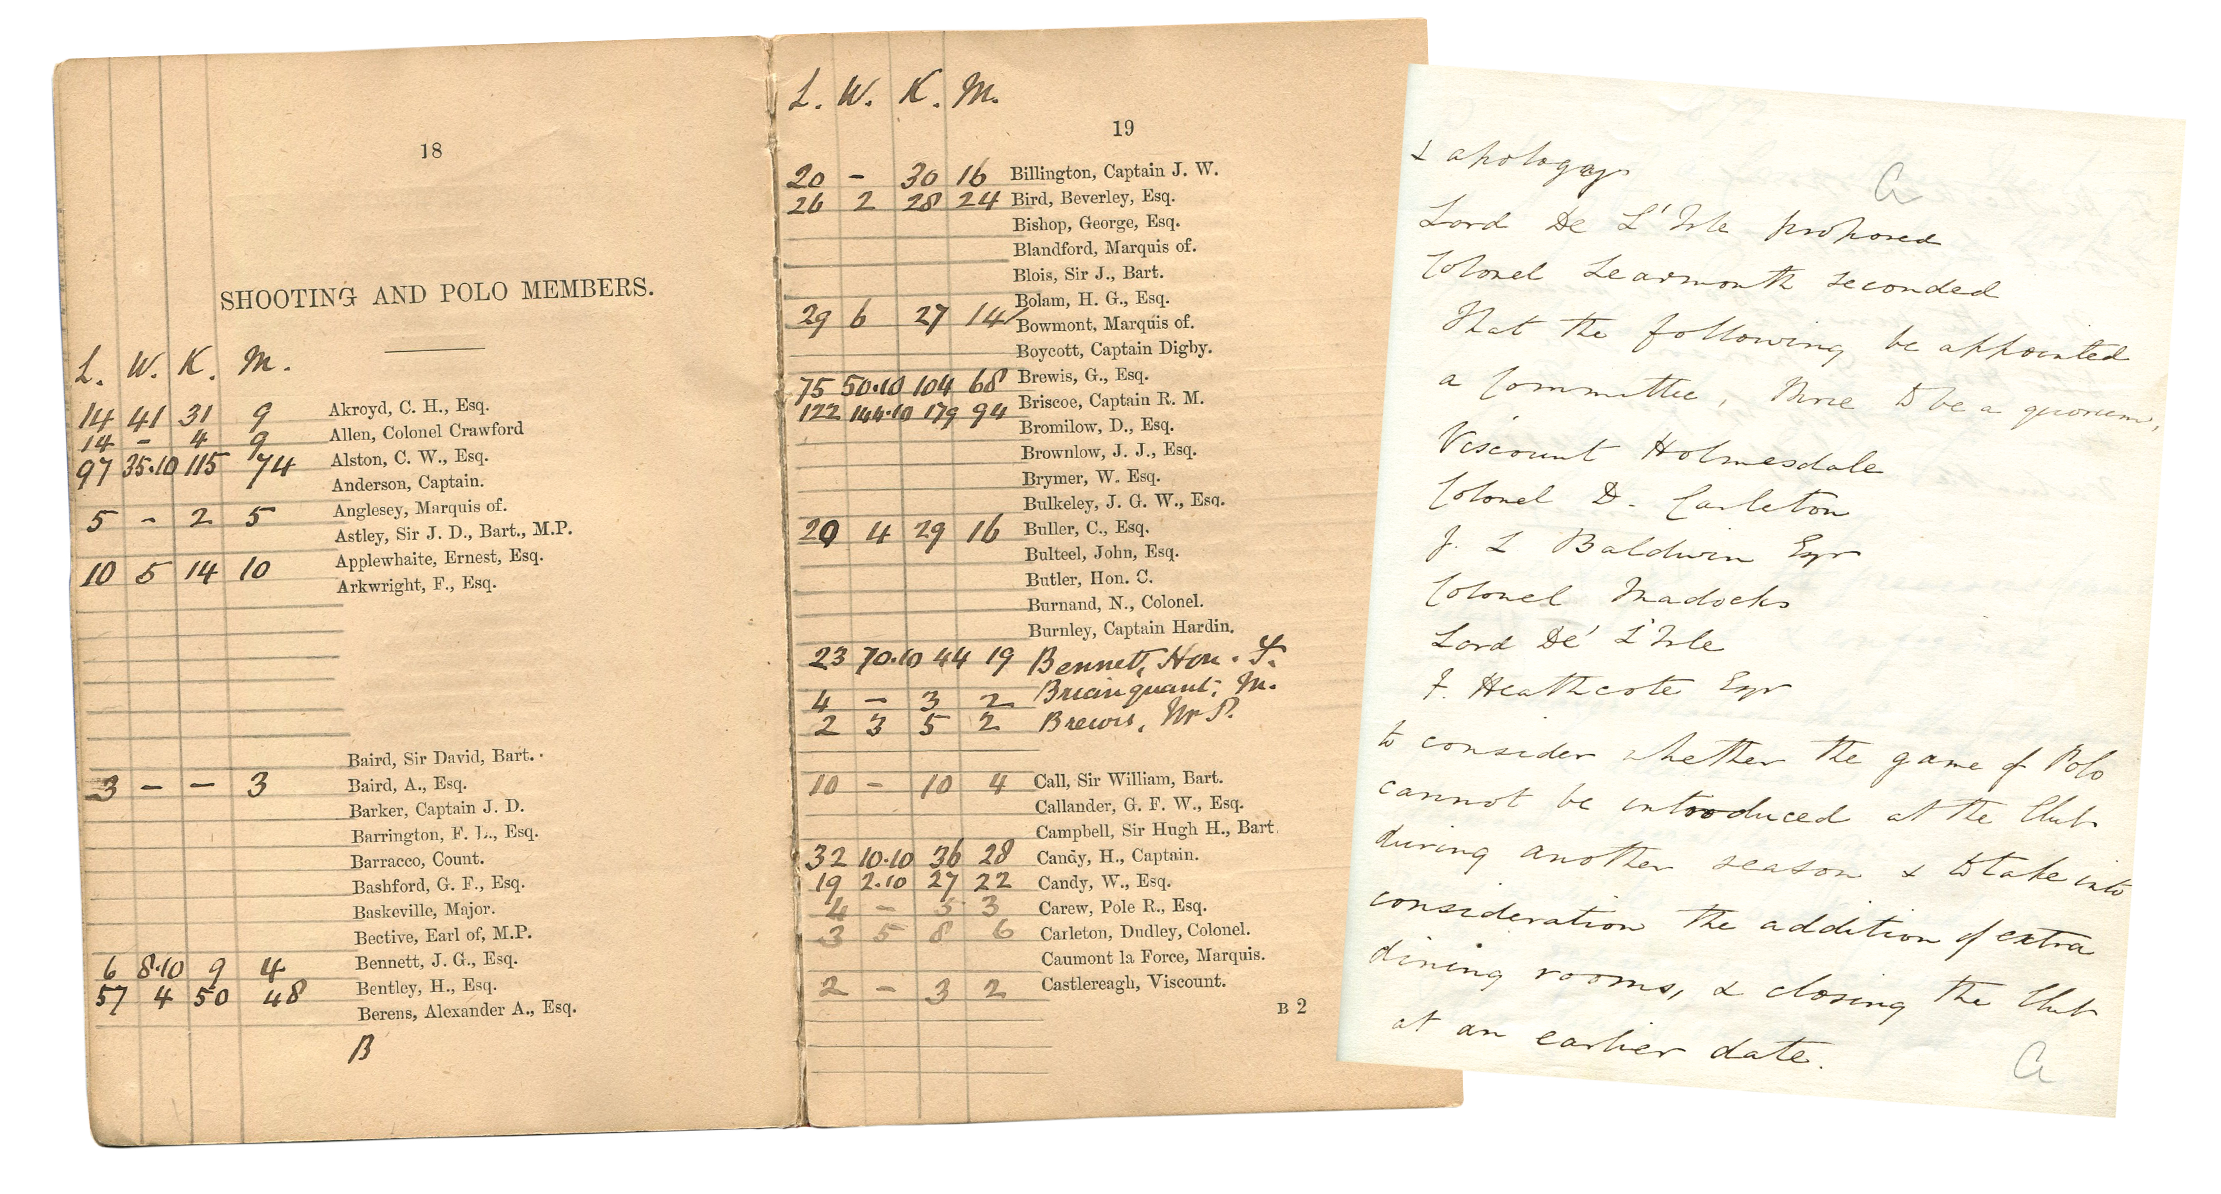 18
SHOOTING AND POLO MEMBERS.
L. W. K. M.
14 41 31 9 Akroyd, C. H., Esq.
14 - 4 9 Allen, Colonel Crawford
97 35·10 115 74 Alston, C. W., Esq.
Anderson, Captain.
5 - 2 5 Anglesey, Marquis of.
Astley, Sir J. D., Bart., M.P.
10 5 14 10 Applewhaite, Ernest, Esq.
Arkwright, F., Esq.
Baird, Sir David, Bart.
3 - - 3 Baird, A., Esq.
Barker, Captain J. D.
Barrington, F. L., Esq.
Barracco, Count.
Bashford, G. F., Esq.
Baskeville, Major.
Bective, Earl of, M.P.
6 8·10 9 4 Bennett, J. G., Esq.
57 4 50 48 Bentley, H., Esq.
Berens, Alexander A., Esq.
B
L. W. K. M.
19
20 - 30 16 Billington, Captain J. W.
26 2 28 24 Bird, Beverley, Esq.
Bishop, George, Esq.
Blandford, Marquis of.
Blois, Sir J., Bart.
Bolam, H. G., Esq.
29 6 27 14 Bowmont, Marquis of.
Boycott, Captain Digby.
75 50·10 104 68 Brewis, G., Esq.
122 144·10 179 94 Briscoe, Captain R. M.
Bromilow, D., Esq.
Brownlow, J. J., Esq.
Brymer, W. Esq.
Bulkeley, J. G. W., Esq.
20 4 29 16 Buller, C., Esq.
Bulteel, John, Esq.
Butler, Hon. C.
Burnand, N., Colonel.
Burnley, Captain Hardin.
23 70·10 44 19 Bennett, Hon. F.
4 - 3 2 M.
2 3 5 2 Brewis, P.
10 - 10 4 Call, Sir William, Bart.
Callander, G. F. W., Esq.
Campbell, Sir Hugh H., Bart.
32 10·10 36 28 Candy, H., Captain.
19 2·10 27 22 Candy, W., Esq.
4 - 5 3 Carew, Pole R., Esq.
3 5 8 6 Carleton, Dudley, Colonel.
Caumont la Force, Marquis.
2 - 3 2 Castlereagh, Viscount.
B 2
& apology
a
Lord De L'Isle proposed
Colonel Learmonth seconded
That the following be appointed
a Committee, Three to be a quorum,
Viscount Holmesdale
Colonel D. Carleton
J. L Baldwin Esqr
Colonel Madocks
Lord De' L'Isle
F. Heathcote Esqr
to consider whether the game of Polo
cannot be introduced at the Club
during another season & to take into
consideration the addition of extra
dining rooms, & closing the Club
at an earlier date.
a